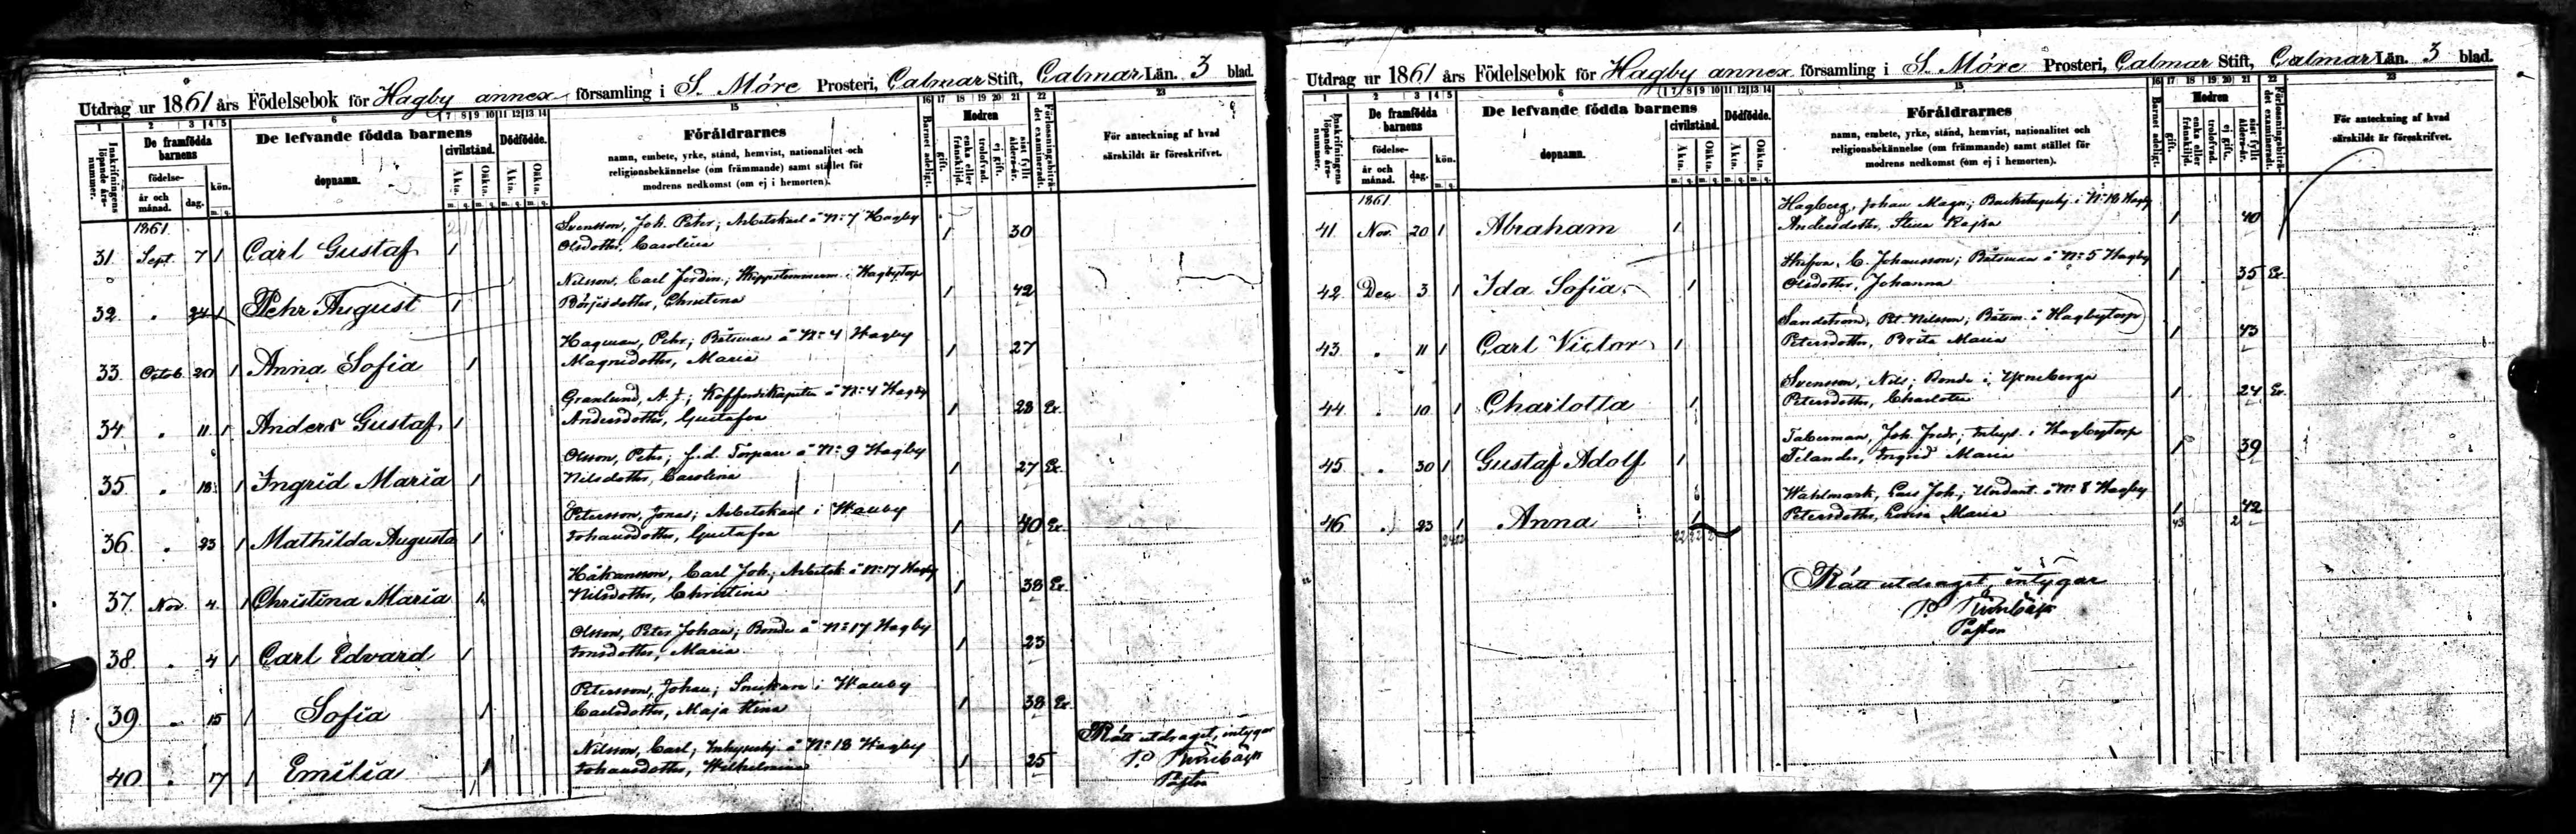 Utdrag ur 1861 års Födelsebok för Hagby annex församling i S. Möre Prosteri, Calmar Stift, Calmar Län. 3 blad.
1 2 3 4 5 6 7 8 9 10 11 12 13 14 15 16 17 18 19 20 21 22 23
Inskrifningens löpande års-nummer.
De framfödda barnens
födelse-
år och månad.
dag.
kön.
m. q.
De lefvande födda barnens
dopnamn.
civilstånd.
Äkta.
Oäkta.
Dödfödde.
Äkta.
Oäkta.
Föräldrarnes
namn, embete, yrke, stånd, hemvist, nationalitet och
religionsbekännelse (om främmande) samt stället för
modrens nedkomst (om ej i hemorten).
Barnet adeligt.
Modren
gift.
enka eller frånskiljd.
trolofvad.
ej gift.
sist fyllt ålders-år.
Förlossningsbiträ-det examineradt.
För anteckning af hvad
särskildt är föreskrifvet.
1861.
Svensson, Joh. Peter; Arbetskarl å No 7 Hagby
31. Sept. 7 1 Carl Gustaf 1 Olsdotter, Carolina 1 30
Nilsson, Carl Ferdin.; Skeppstimmerm. i Hagbytorp
32. " 24 1 Pehr August 1 Börjesdotter, Christina 1 42
Hagman, Pehr; Båtsman å No 4 Hagby
33. Octob. 20 1 Anna Sofia 1 Magnidotter, Maria 1 27
Granlund, A. J.; Kofferdikapiten å No 4 Hagby
34. " 11 1 Anders Gustaf 1 Andersdotter, Gustafva 1 28 Ex.
Olsson, Petr; f.d. Torpare å No 9 Hagby
35. " 18 1 Ingrid Maria 1 Nilsdotter, Carolina 1 27 Ex.
Petersson, Jonas; Arbetskarl i Wauby
36. " 23 1 Mathilda Augusta 1 Johansdotter, Gustafva 1 40 Ex.
Håkansson, Carl Joh.; Arbetsk. å No 17 Hagby
37. Nov. 4. 1 Christina Maria 1 Nilsdotter, Christina 1 38 Ex.
Olsson, Peter Johan; Bonde å No 17 Hagby
38. " 4 1 Carl Edvard 1 Jonsdotter, Maria 1 23
Petersson, Johan; Snickare i Wauby
39. " 15 1 Sofia 1 Carlsdotter, Maja Stina 1 38 Ex.
Nilsson, Carl; Inhyseshj. å No 18 Hagby
40. " 17 1 Emilia 1 Johansdotter, Wilhelmina 1 25
Rätt utdraget, intygar
P.
Pastor
Utdrag ur 1861 års Födelsebok för Hagby annex församling i S. Möre Prosteri, Calmar Stift, Calmar Län. 3 blad.
1 2 3 4 5 6 7 8 9 10 11 12 13 14 15 16 17 18 19 20 21 22 23
Inskrifningens löpande års-nummer.
De framfödda barnens
födelse-
år och månad.
dag.
kön.
m. q.
De lefvande födda barnens
dopnamn.
civilstånd.
Äkta.
Oäkta.
Dödfödde.
Äkta.
Oäkta.
Föräldrarnes
namn, embete, yrke, stånd, hemvist, nationalitet och
religionsbekännelse (om främmande) samt stället för
modrens nedkomst (om ej i hemorten).
Barnet adeligt.
Modren
gift.
enka eller frånskiljd.
trolofvad.
ej gift.
sist fyllt ålders-år.
Förlossningsbiträ-det examineradt.
För anteckning af hvad
särskildt är föreskrifvet.
1861.
Hagberg, Johan Magn.; Backstuguhj. i No 18 Hagby
41. Nov. 20 1 Abraham 1 Andersdotter, Stina Kajsa 1 40
C. Johansson; Båtsman å No 5 Hagby
42. Dec. 3 1 Ida Sofia 1 Olsdotter, Johanna 1 35 Ex.
Sandström, Pet. Nilsson; Båtsm. i Hagbytorp
43. " 11 1 Carl Victor 1 Petersdotter, Brita Maria 1 43
Svensson, Nils; Bonde i Ypneberga
44. " 10 1 Charlotta 1 Petersdotter, Charlotta 1 24 Ex.
Taberman, Joh. Fredr.; Inhys. i Hagbytorp
45. " 30 1 Gustaf Adolf 1 Telander, Ingrid Maria 1 39
Wahlmark, Lars Joh.; Undant. å No 8 Hagby
46. " 23 1 Anna 1 Petersdotter, Lovisa Maria 1 42
24 22 22 22 2 43 2
Rätt utdraget, intygar
P.
Pastor